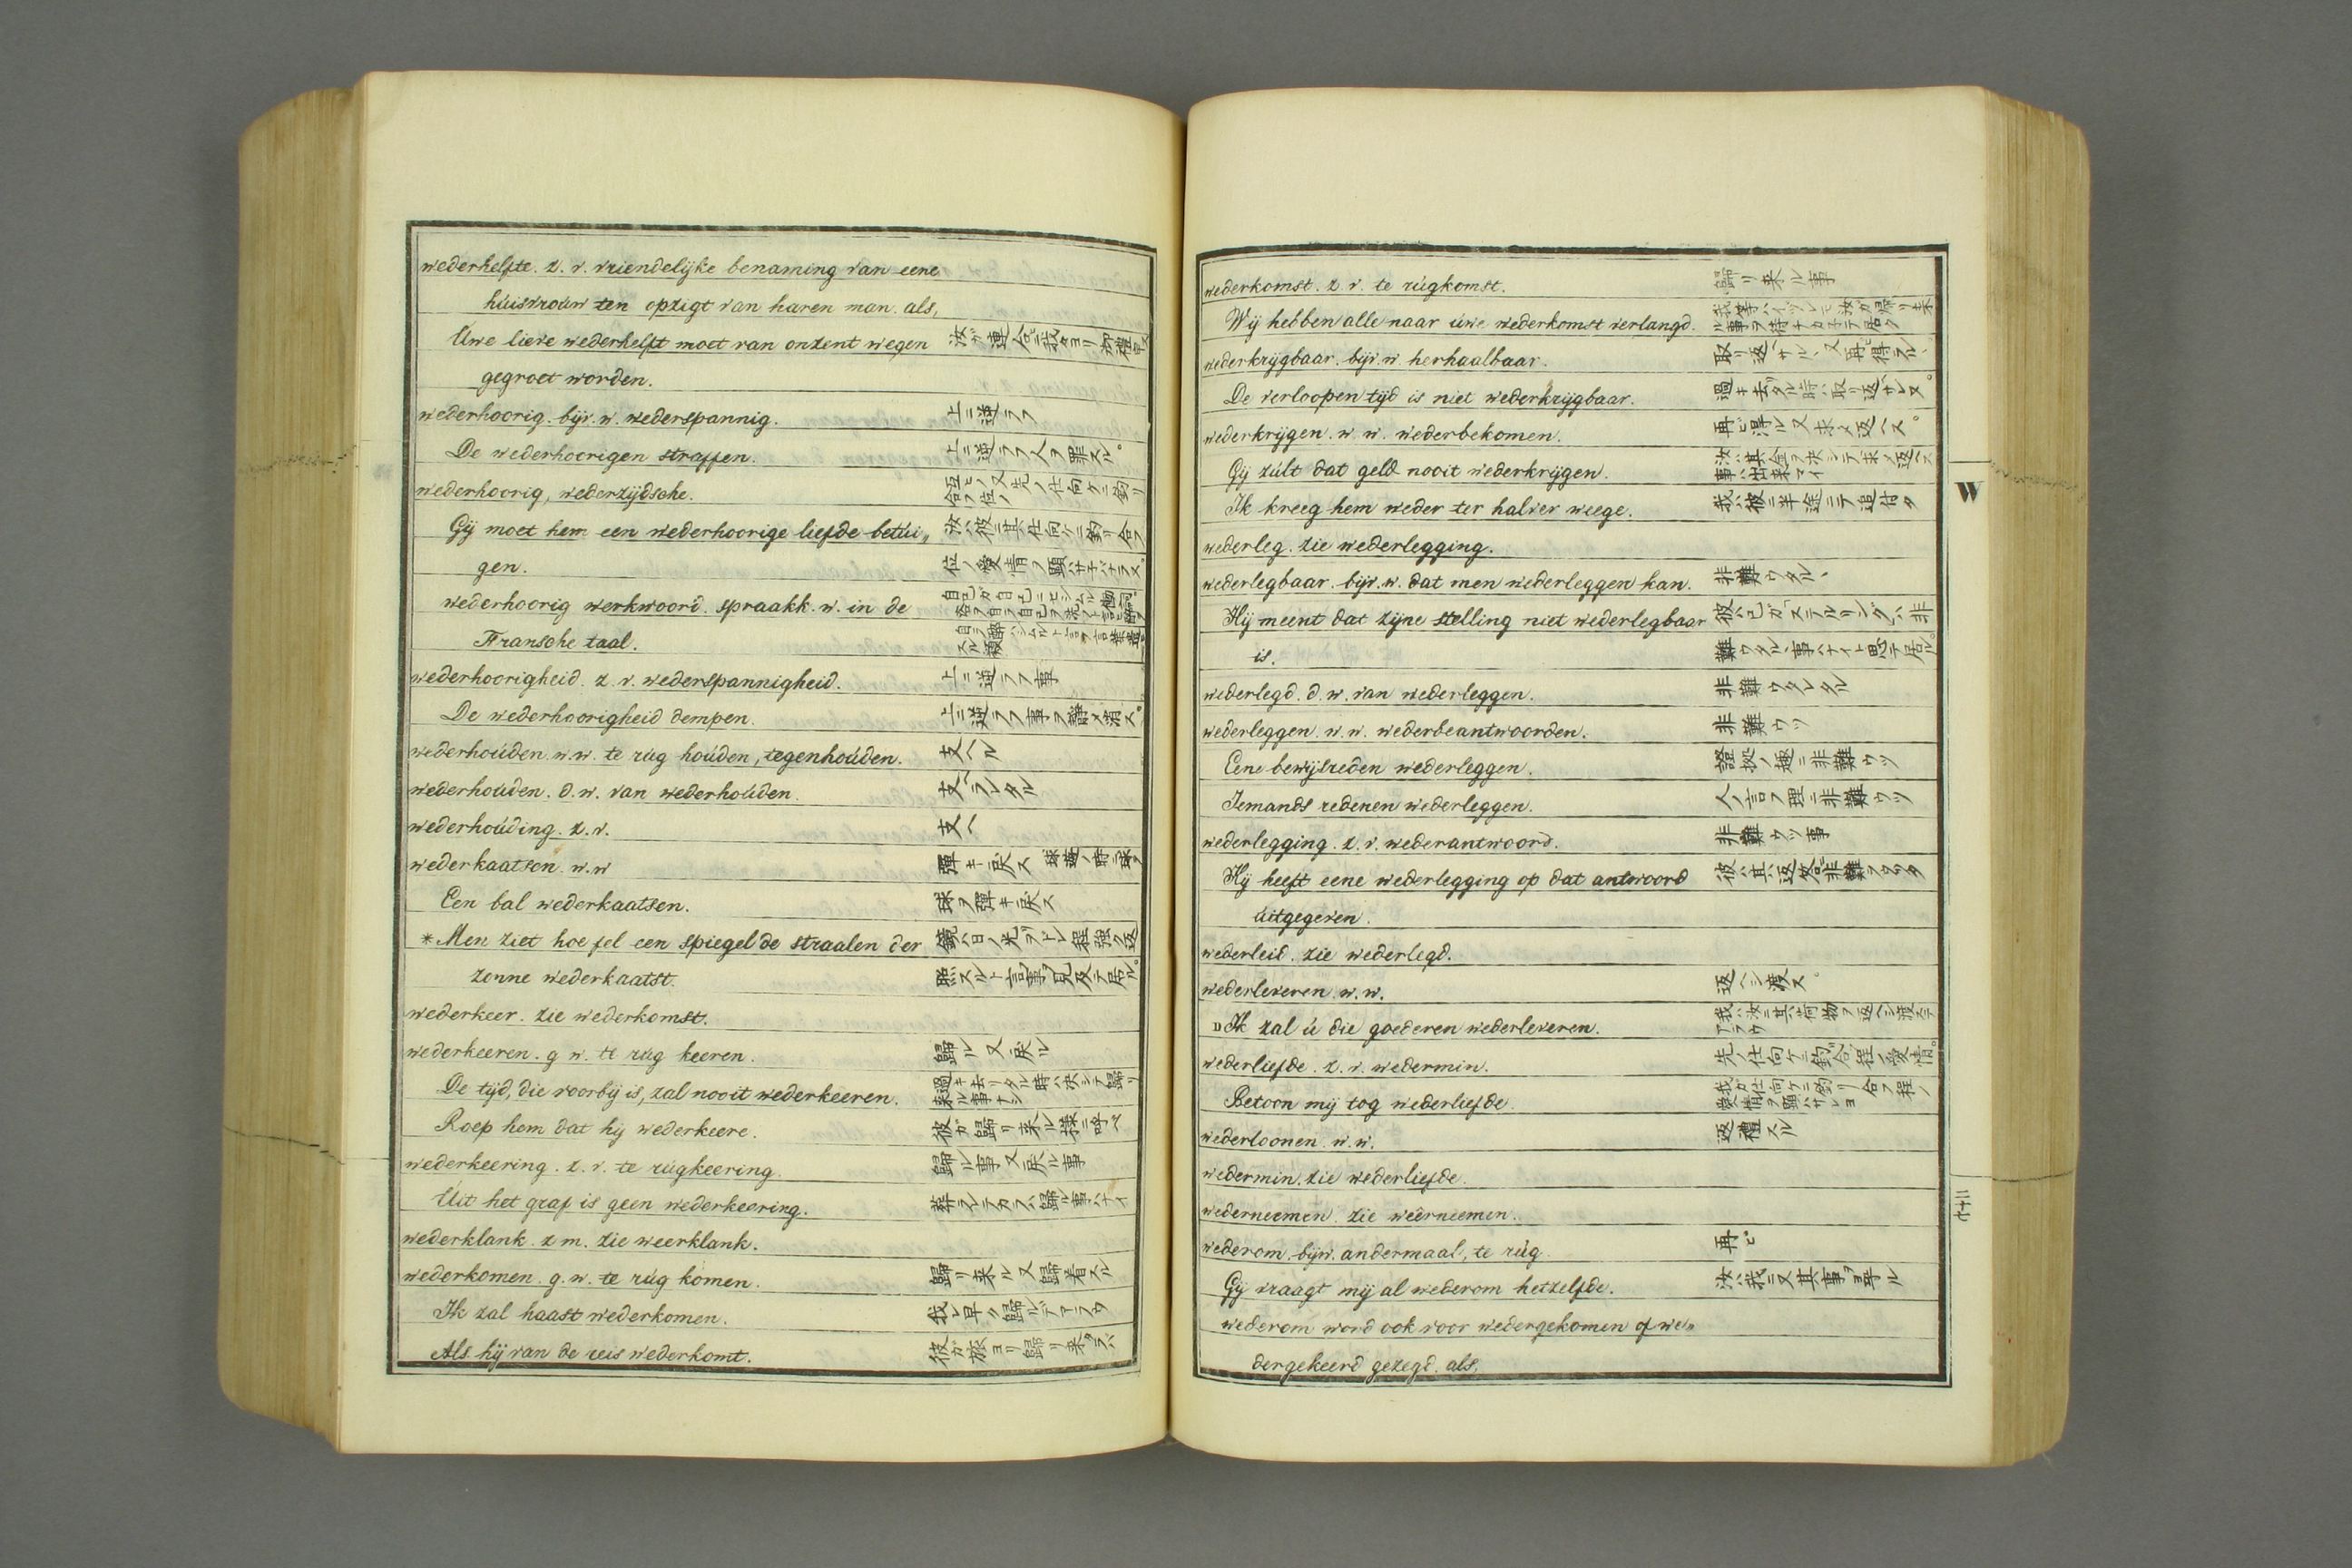 wederhelfte. z. v. vriendelijke benaming van eene
húisvroúw ten opzigt van haren man. als,
Uwe lieve wederhelft moet van onzent wegen
gegroet worden.
wederhoorig. bijv. w. wederspannig. 上ニ逆ラフ
De wederhoorigen straffen. 上ニ逆ラフ人ヲ罪スル。
wederhoorig, wederzijdsche.
Gij moet hem een wederhoorige liefde betúi„ 汝ハ彼ニ其仕向ケニ釣リ合フ
gen. 位ノ愛情ヲ顕ハサネバナラヌ。
wederhoorig werkwoord. spraakk. w. in de
Fransche taal.
wederhoorigheid. z. v. wederspannigheid. 上ニ逆ラフ事
De wederhoorigheid dempen. 上ニ逆ラフ事ヲ静メ消ス。
wederhoúden. w. w. te rúg hoúden, tegenhoúden. 支ヘル
wederhoúden. d. w. van wederhoúden. 支ヘラレタル
wederhoúding. z. v. 支ヘ
wederkaatsen. w. w 弾キ戻ス
Een bal wederkaatsen. 球ヲ弾キ戻ス
*Men ziet hoe fel een spiegel de straalen der 鏡ハ日ノ光ヲドレ程強ク返
zonne wederkaatst. 照スルト言事ヲ見及テ居ル。
wederkeer. zie wederkomst.
wederkeeren. g. w. te rúg keeren. 歸ル又戻ル
De tijd, die voorbij is, zal nooit wederkeeren. 過キ去リタル時ハ決シテ歸リ来ル事ナシ
Roep hem dat hij wederkeere. 彼ガ歸リ来ル様ニ呼ベ
wederkeering. z. v. te rúgkeering. 歸ル事又戻ル事
Uit het graf is geen wederkeering. 葬ラレテカラハ歸ル事ハナイ
wederklank. z. m. zie weerklank.
wederkomen. g. w. te rúg komen. 歸リ来ル又歸着スル
Ik zal haast wederkomen. 我レ早ク歸ルデアラウ
Als hij van de reis wederkomt. 彼ガ旅ヨリ歸リ来タラバ
wederkomst. z. v. te rúgkomst. 歸リ来ル事
Wij hebben alle naar úwe wederkomst verlangd.
wederkrijgbaar. bijv. w. herhaalbaar.
De verloopen tijd is niet wederkrijgbaar. 過キ去タル時ハ取リ返サレヌ。
wederkrijgen. w. w. wederbekomen. 再ビ得ル又求メ返ヘス。
Gij zúlt dat geld nooit wederkrijgen. 汝ハ其金ヲ決シテ求メ返ヘス事ハ出来マイ
Ik kreeg hem weder ter halver weege. 我ハ彼ニ半途ニテ追付タ
wederleg. zie wederlegging.
wederlegbaar. bijv. w. dat men wederleggen kan.
Hij meent dat zijne stelling niet wederlegbaar 彼ハ己ガステルリングハ非
is. 難ウタルヽ事ハナイト思テ居ル。
wederlegd. d. w. van wederleggen. 非難ウタレタル
wederleggen. w. w. wederbeantwoorden. 非難ウツ
Eene bewijsreden wederleggen. 證拠ノ趣ニ非難ウツ
Iemands redenen wederleggen. 人ノ言フ理ニ非難ウツ
wederlegging. z. v. wederantwoord. 非難ウツ事
Hij heeft eene wederlegging op dat antwoord
úitgegeven.
wederleid. zie wederlegd.
wederleveren. w. w. 返ヘシ渡ス。
"Ik zal ú die goederen wederleveren. 我ハ汝ニ其荷物ヲ返ヘシ渡スデアラウ
wederliefde. z. v. wedermin. 先ノ仕向ケニ釣合程ノ愛情。
Betoon mij tog wederliefde. 我ガ仕向ケニ釣リ合フ程ノ愛情ヲ顕ハサレヨ
wederloonen. w. w. 返禮スル
wedermin. zie wederliefde.
wederneemen. zie weêrneemen.
wederom. bijw. andermaal, te rúg. 再ビ
Gij vraagt mij al wederom hetzelfde. 汝ハ我ニ又其事ヲ尋ル
wederom word ook voor wedergekomen of we„
dergekeerd gezegd. als,
W